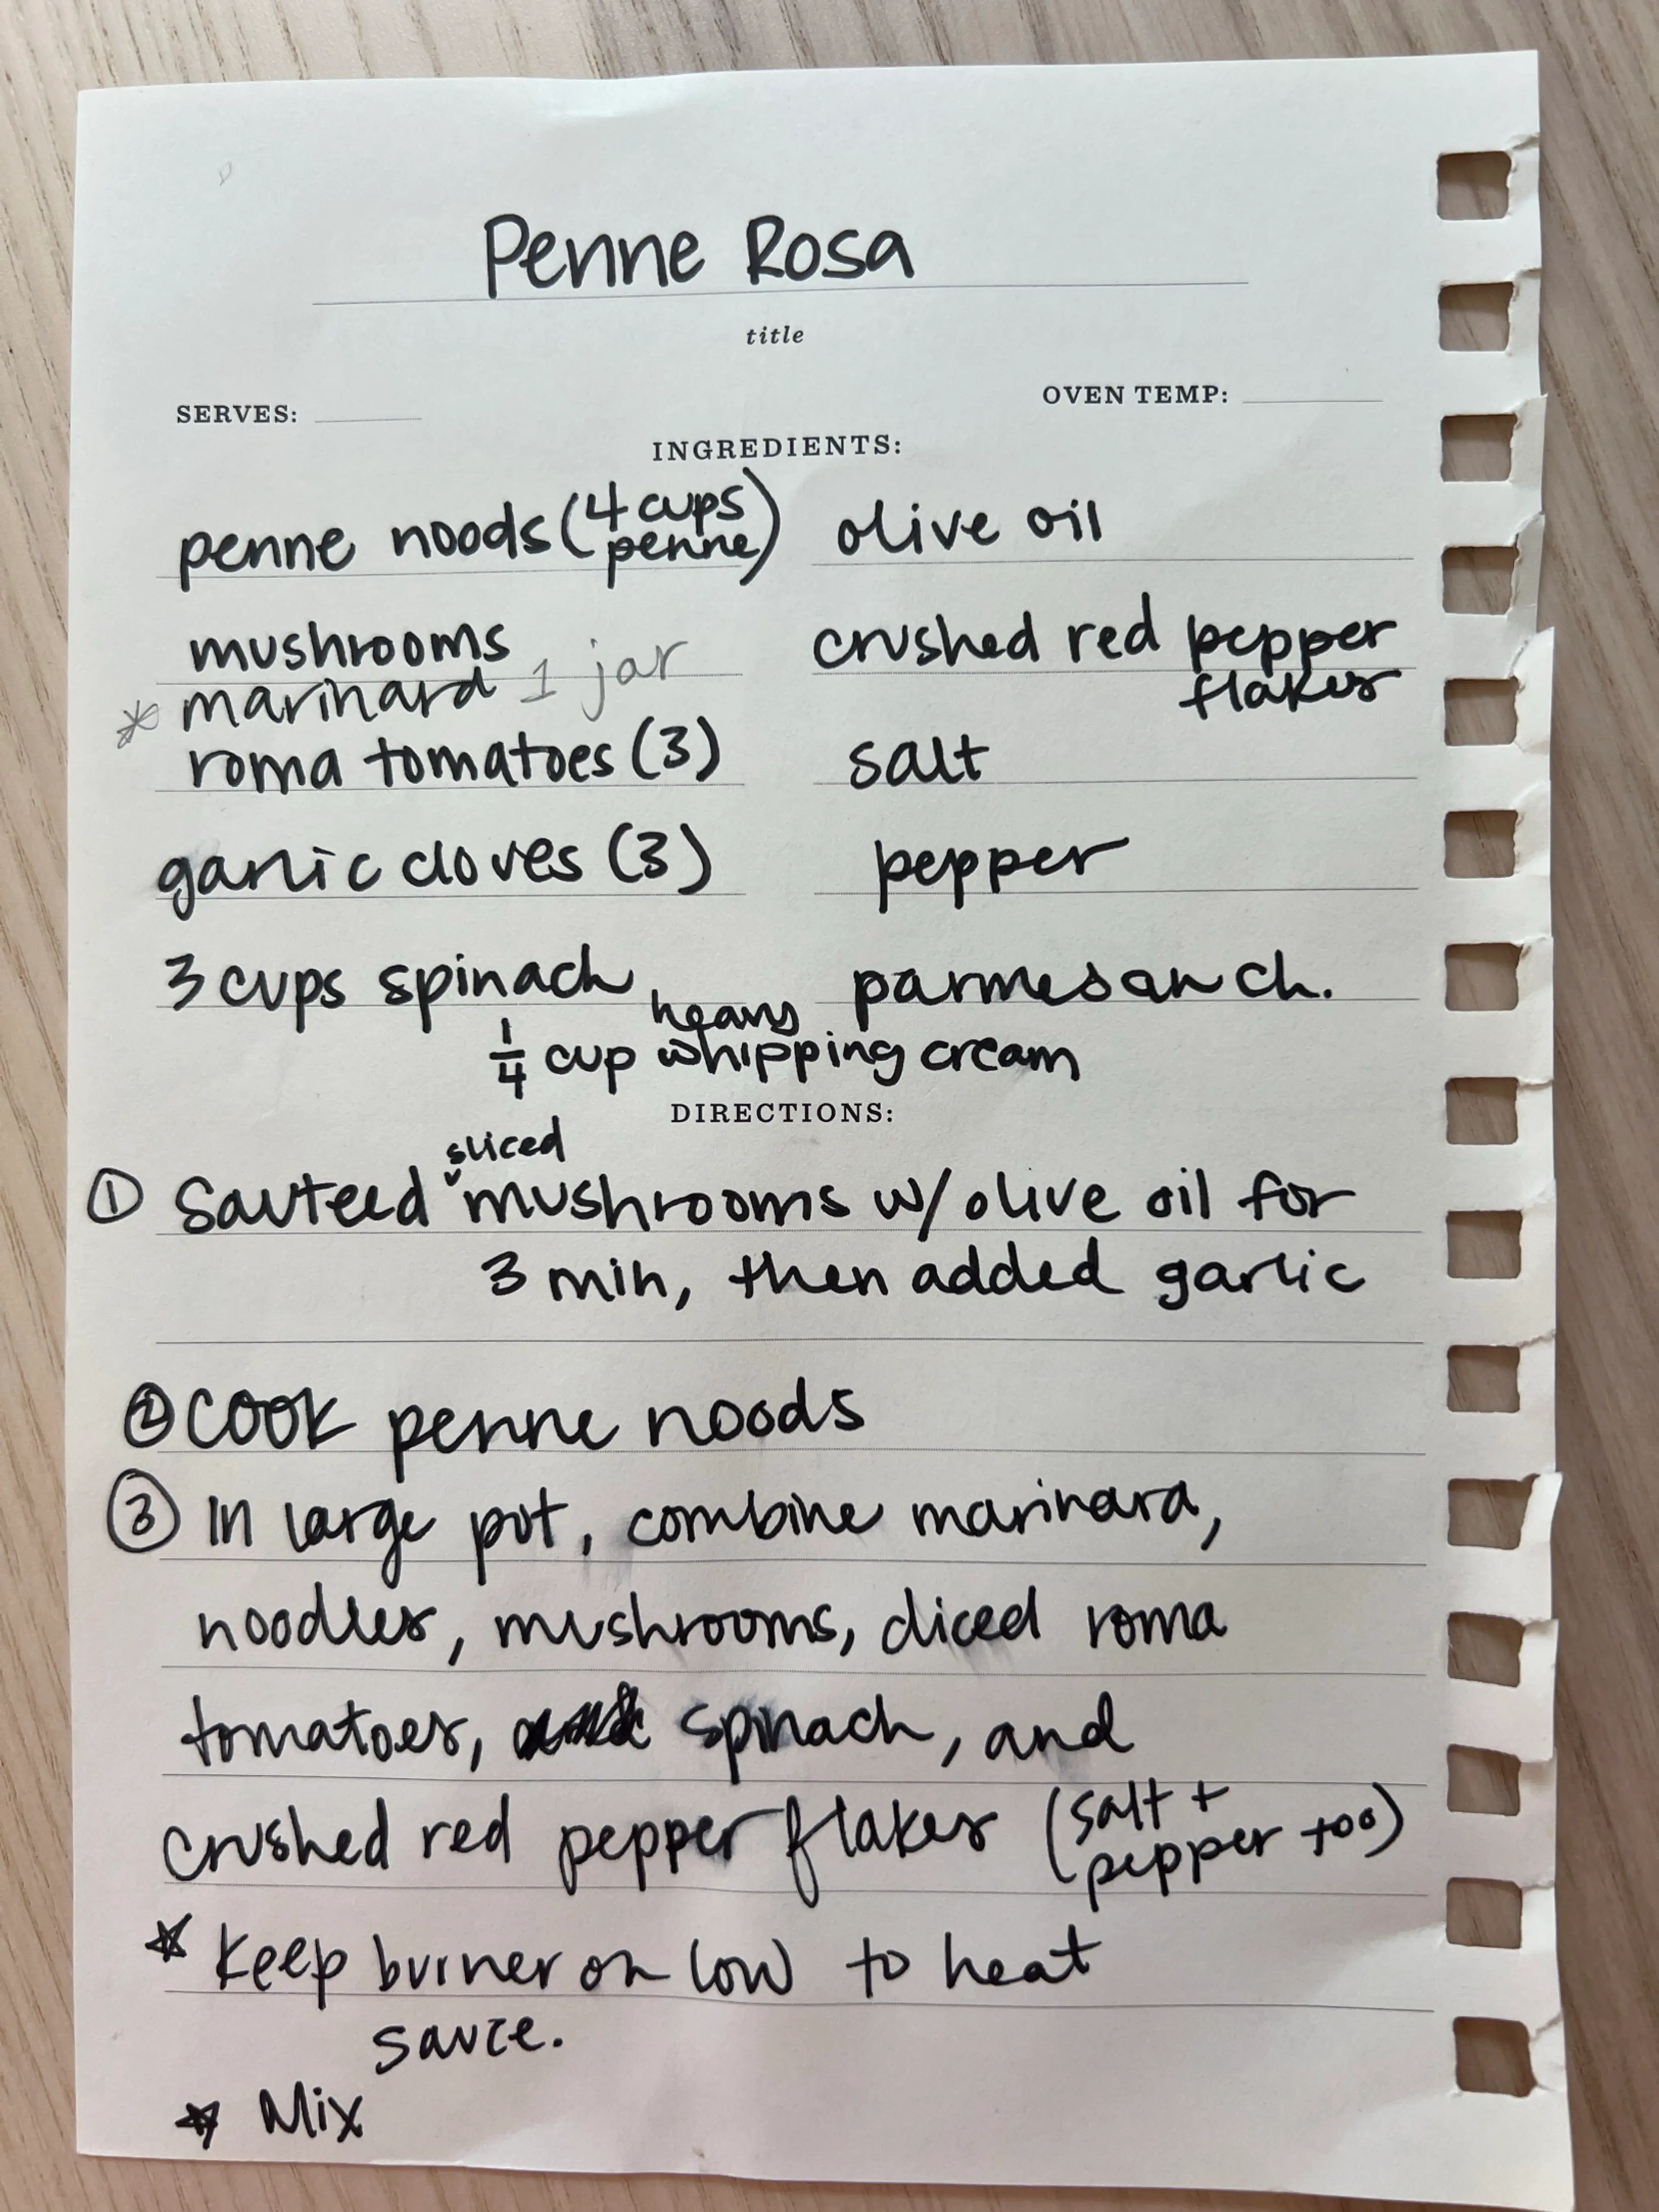 Penne Rosa
title
SERVES:
OVEN TEMP:
INGREDIENTS:
penne noods (4 cups penne)
mushrooms
* marinara 1 jar
roma tomatoes (3)
garlic cloves (3)
3 cups spinach
olive oil
crushed red pepper
flakes
salt
pepper
parmesan ch.
heavy
1/4 cup whipping cream
DIRECTIONS:
sliced
① Sauteed mushrooms w/ olive oil for
3 min, then added garlic
② Cook penne noods
③ In large pot, combine marinara,
noodles, mushrooms, diced roma
tomatoes, spinach, and
crushed red pepper flakes (salt +
pepper too)
☆ Keep burner on low to heat
sauce.
☆ Mix